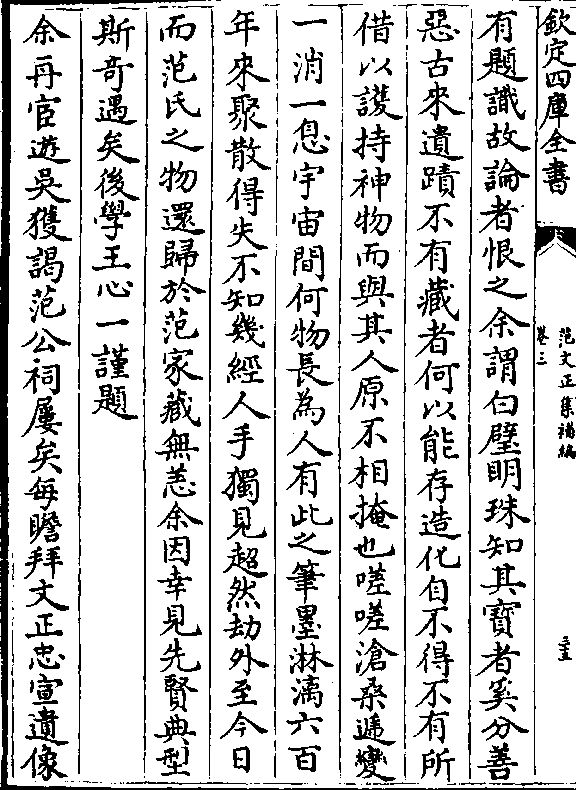 欽定四庫全書
范文正集補編
卷三
三五
有題識故論者恨之余謂白璧明珠知其寶者奚分善
惡古來遺蹟不有藏者何以能存造化自不得不有所
借以護持神物而與其人原不相掩也嗟嗟滄桑遞變
一消一息宇宙間何物長為人有此之筆墨淋漓六百
年來聚散得失不知幾經人手獨見超然劫外至今日
而范氏之物還歸於范家藏無恙余因幸見先賢典型
斯奇遇矣後學王心一謹題
余再宦遊吳獲謁范公祠屢矣每瞻拜文正忠宣遺像